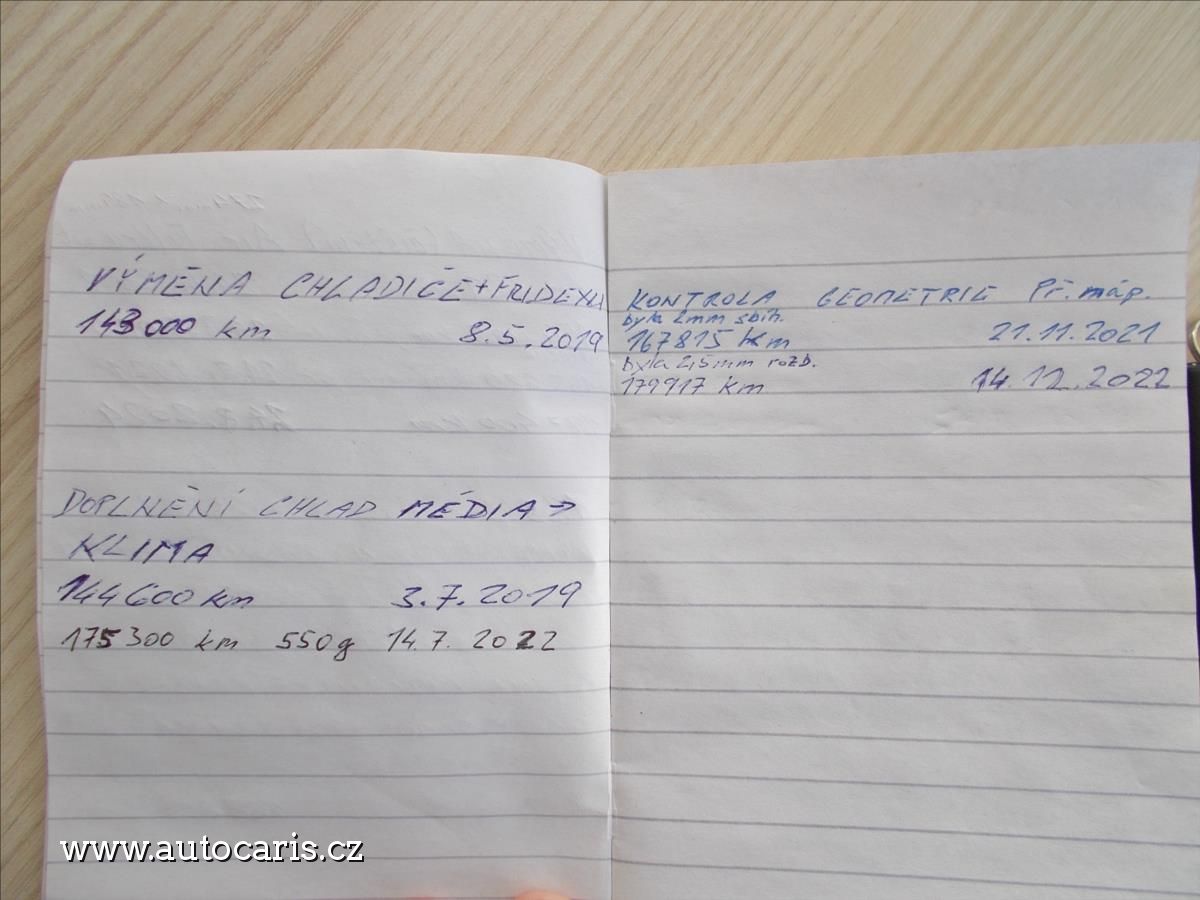 VÝMĚNA CHLADIČE + FRIDEXU
143000 km 8.5.2019
DOPLNĚNÍ CHLAD MÉDIA →
KLIMA
144600 km 3.7.2019
175300 km 550g 14.7. 2022
KONTROLA GEOMETRIE Př. náp.
byla 2mm sbíh.
167815 km 21.11.2021
byla 2,5mm rozb.
179917 km 14.12.2022
www.autocaris.cz